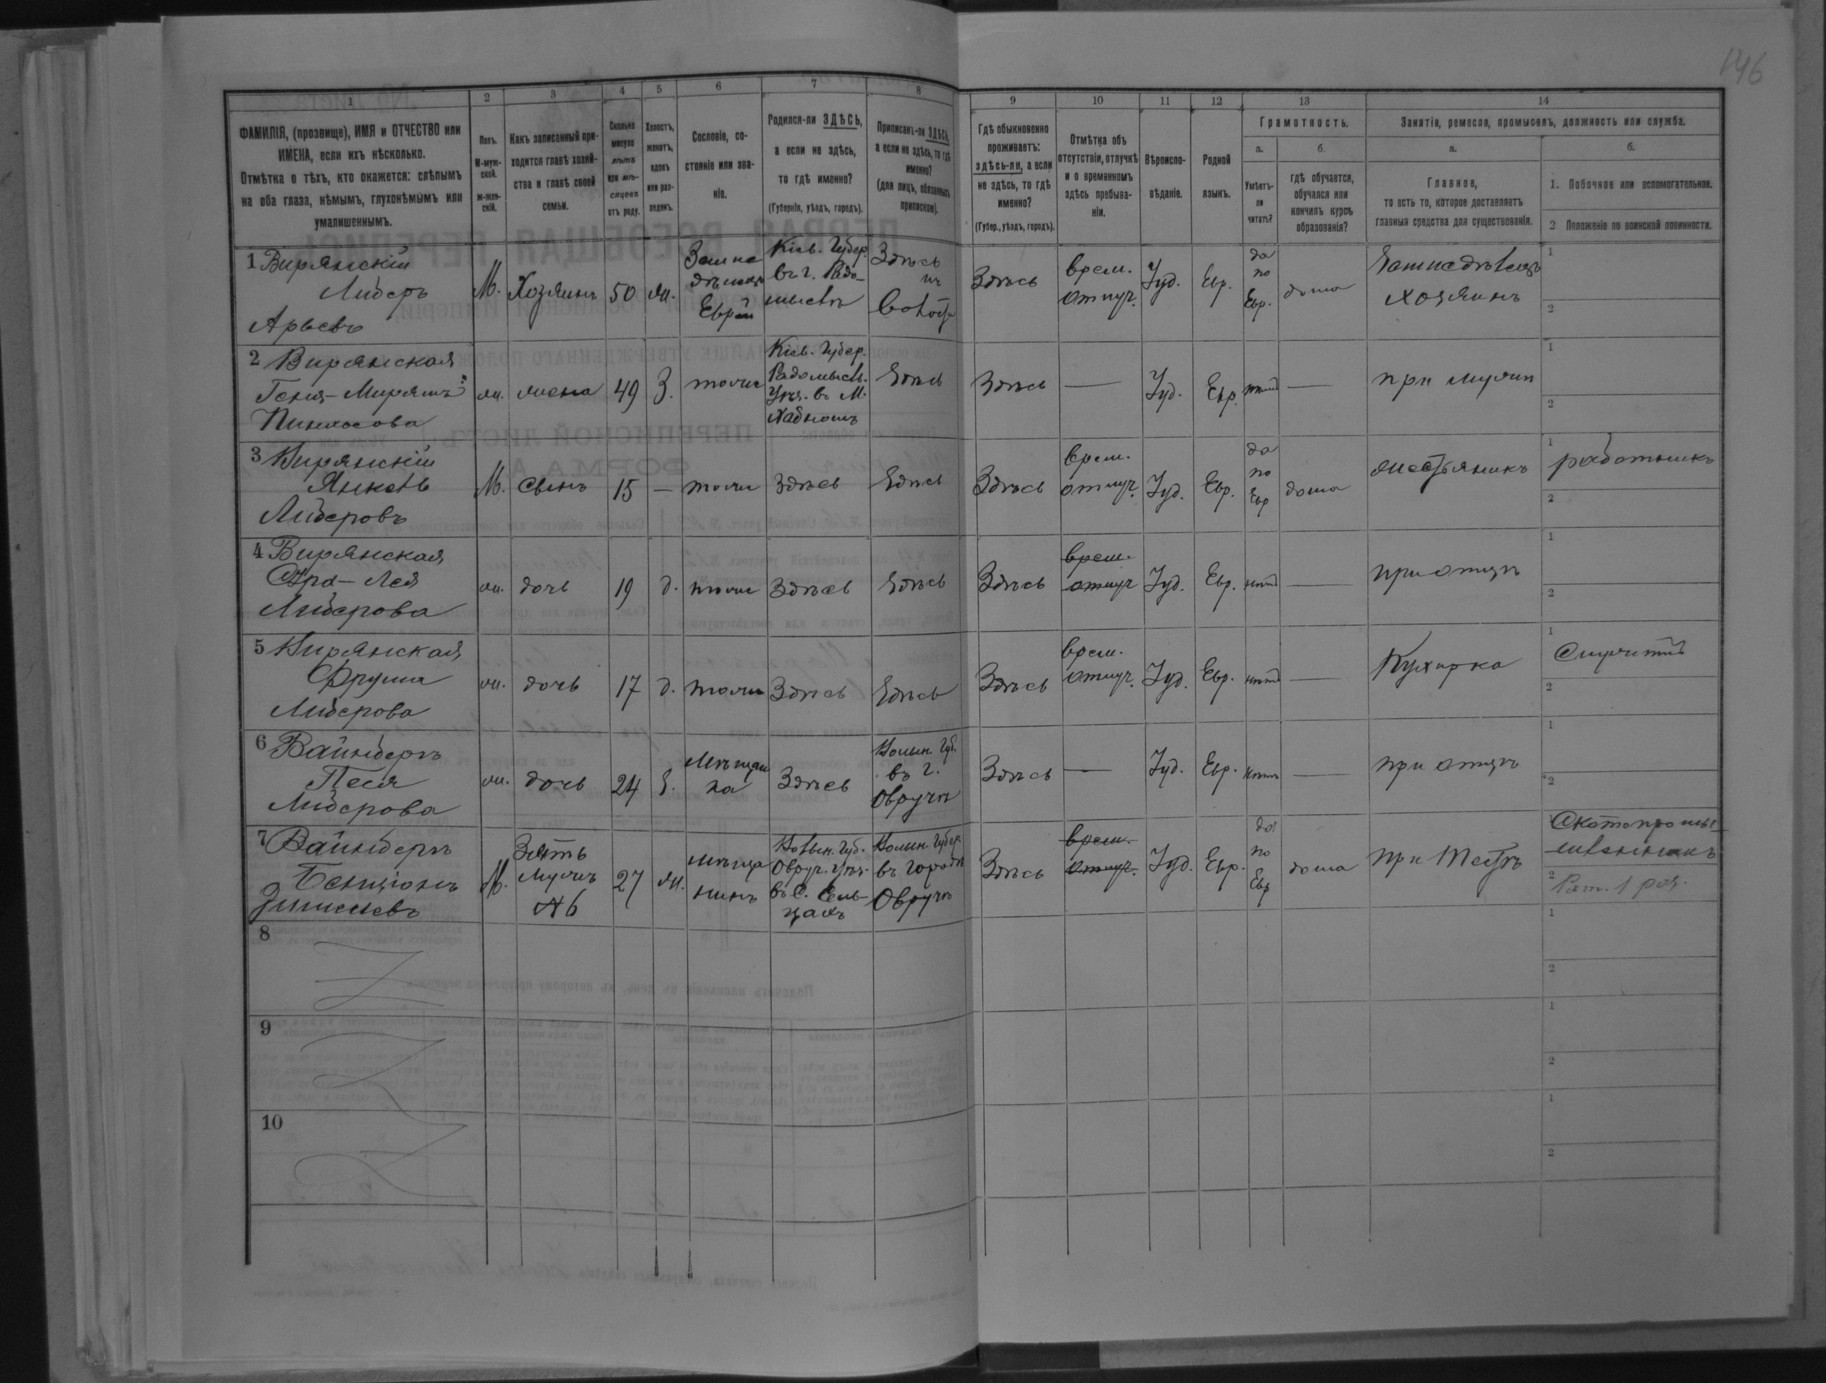 146
1
2
3
4
5
6
7
8
9
10
11
12
13
14
ФАМИЛІЯ, (прозвище), ИМЯ и ОТЧЕСТВО или
ИМЕНА, если ихъ нѣсколько.
Отмѣтка о тѣхъ, кто окажется: слѣпымъ
на оба глаза, нѣмымъ, глухонѣмымъ или
умалишеннымъ.
Полъ.
М-муж-
ской.
Ж-жен-
скій.
Какъ записанный при-
ходится главѣ хозяй-
ства и главѣ своей
семьи.
Сколько
минуло
лѣтъ
или мѣ-
сяцевъ
отъ роду.
Холостъ,
женатъ,
вдовъ
или раз-
веденъ.
Сословіе, со-
стояніе или зва-
ніе.
Родился-ли ЗДѢСЬ,
а если не здѣсь,
то гдѣ именно?
(Губернія, уѣздъ, городъ).
Приписанъ-ли ЗДѢСЬ,
а если не здѣсь, то гдѣ
именно?
(для лицъ, обязанныхъ
припиской).
Гдѣ обыкновенно
проживаетъ:
здѣсь-ли, а если
не здѣсь, то гдѣ
именно?
(Губер., уѣздъ, городъ).
Отмѣтка объ
отсутствіи, отлучкѣ
и о временномъ
здѣсь пребыва-
ніи.
Вѣроиспо-
вѣданіе.
Родной
языкъ.
Грамотность.
а.
Умѣетъ-
ли
читать?
б.
гдѣ обучается,
обучался или
кончилъ курсъ
образованія?
Занятія, ремесла, промыселъ, должность или служба.
а.
Главное,
то есть то, которое доставляетъ
главныя средства для существованія.
б.
1. Побочное или вспомогательное.
2 Положеніе по воинской повинности.
1 Вирянскій
Либеръ
Арьевъ
М. Хозяинъ 50 ж.
Еврей
Кіев. Губер.
въ г. Радо-
мыслѣ
Здѣсь
Здѣсь
врем.
отлуч.
Іуд. Евр.
да
по
Евр.
дома
Хозяинъ
1
2
2 Вирянская
Пинхосова
ж. жена 49 З. тоже
Кіев. Губер.
Радомысл.
Уѣз. въ М.
Хабномъ
Здѣсь
Здѣсь — Іуд. Евр. нѣтъ —
при мужѣ
1
2
3 Вирянскій
Янкель
Либеровъ
М. Сынъ 15 — тоже Здѣсь Здѣсь
Здѣсь
врем.
отлуч.
Іуд. Евр.
да
по
Евр
дома
1 работникъ
2
4 Вирянская
Сура-Лея
Либерова
ж. дочь 19 д. тоже Здѣсь Здѣсь
Здѣсь
врем.
отлуч
Іуд. Евр. нѣтъ —
при отцѣ
1
2
5 Вирянская
Фрума
Либерова
ж. дочь 17 д. тоже Здѣсь Здѣсь
Здѣсь
врем.
отлуч.
Іуд. Евр. нѣтъ —
Кухарка
1
2
6 Вайнбергъ
Песя
Либерова
ж. дочь 24 З.
Мѣщан
ка
Здѣсь
Волын. Губ.
въ г.
Овручѣ
Здѣсь — Іуд. Евр. нѣтъ —
при отцѣ
1
2
7 Вайнбергъ
Бенціонъ
М.
Зять
мужъ
№6
27 ж.
мѣща
нинъ
Волын. Губ.
Овруч. Уѣз.
Волын. Губер.
въ городѣ
Овручѣ
Здѣсь
врем.
отлуч.
Іуд. Евр.
да
по
Евр
дома
при Тестѣ
Скотопромы
шленникъ
2 Рат. 1 раз.
8
1
2
9
1
2
10
1
2